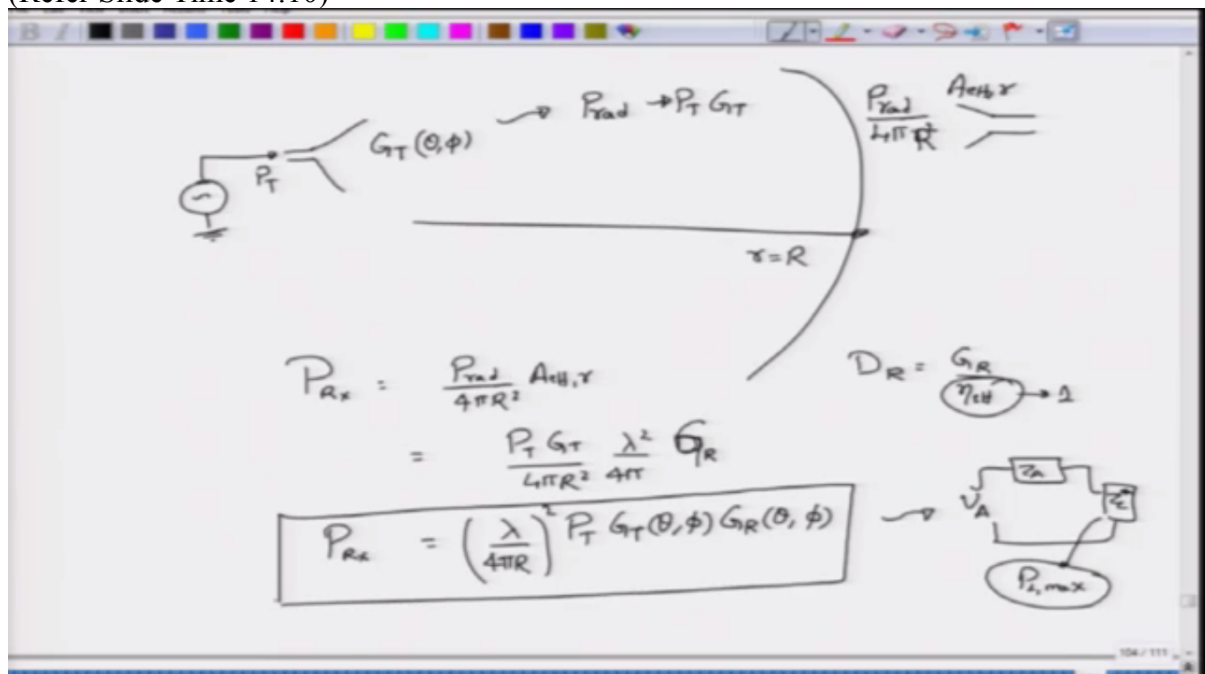 (Refer Slide Time 14:10)
B I
G_T (θ,φ)
P_T
P_rad → P_T G_T
P_rad / 4πR²
A_eff,r
r = R
P_Rx = P_rad / 4πR² A_eff,r
= P_T G_T / 4πR² λ² / 4π G_R
P_Rx = (λ / 4πR)² P_T G_T(θ,φ) G_R(θ,φ)
D_R = G_R / η_eff → 1
Z_A
V_A
P_L,max
104 / 111